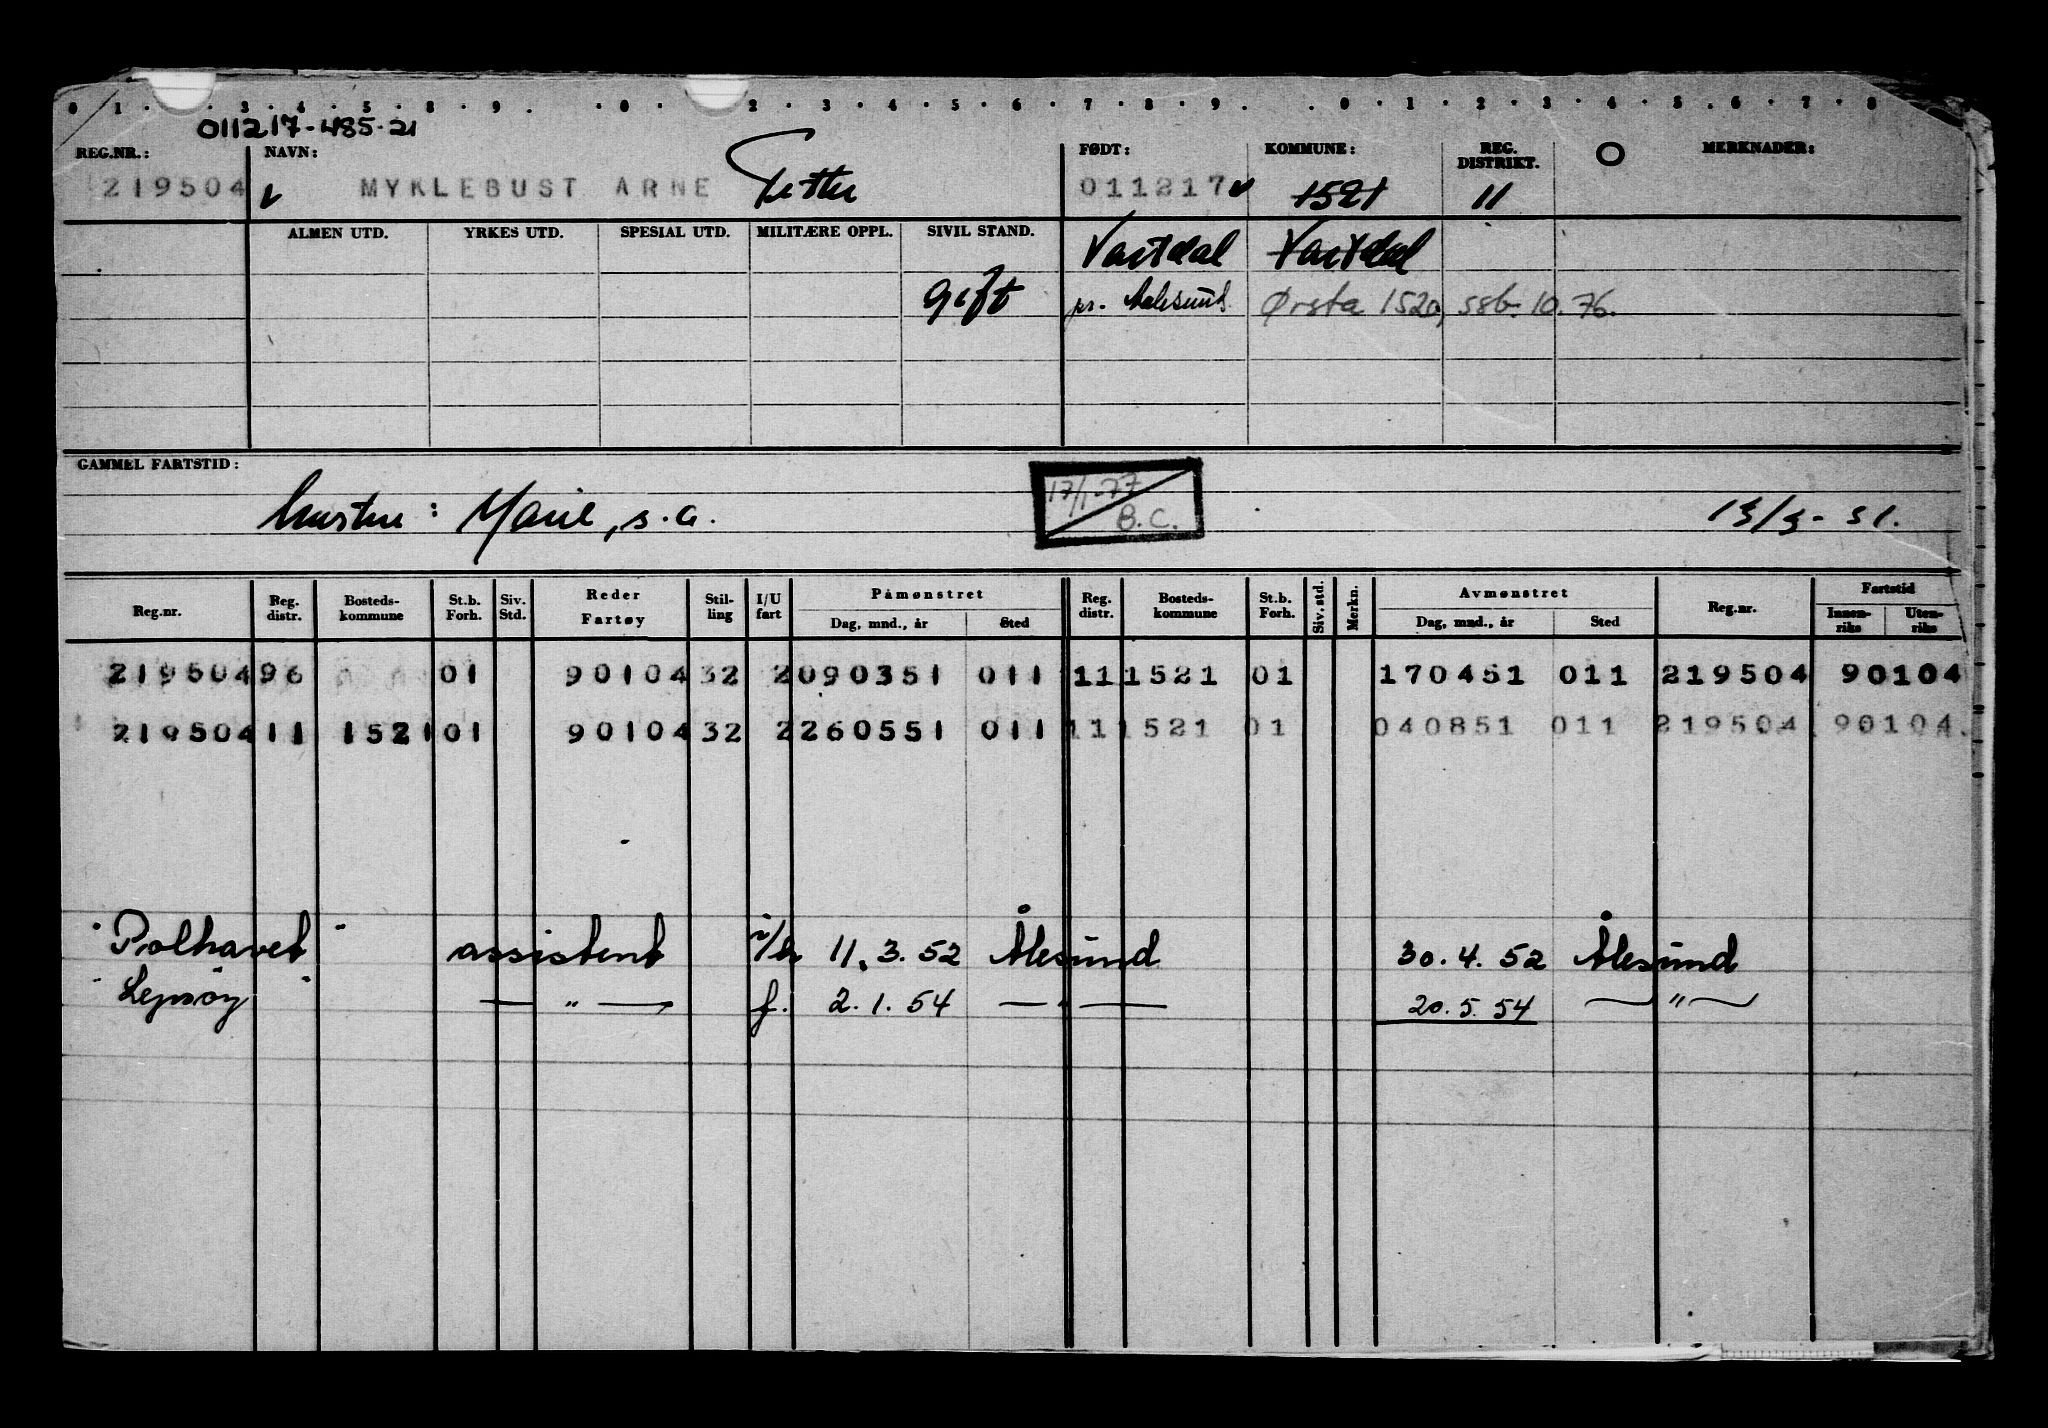 0 1 . 3 . 4 . 5 . 8 . 9 . . 0 . 2 . 3 . 4 . 5 . 6 . 7 . 8 . 9 . . 0 . 1 . 2 . 3 . 4 . 5 . 6 . 7 . 8
011217-485-21
REG.NR.: NAVN: FØDT: KOMMUNE: REG. DISTRIKT. O MERKNADER:
219504 MYKLEBUST ARNE Petter 011217 1521 11
ALMEN UTD. YRKES UTD. SPESIAL UTD. MILITÆRE OPPL. SIVIL STAND. Vartdal Vartdal
gift pr. Aalesund. Ørsta 1520, ssb. 10.76.
GAMMEL FARTSTID:
17/1-77
B.C.
hustru: Marie, s.a. 13/3-51.
Reg.nr. Reg. distr. Bosteds-kommune St.b. Forh. Siv. Std. Reder Fartøy Stil-ling I/U fart Påmønstret Dag, mnd., år Sted Reg. distr. Bosteds-kommune St.b. Forh. Siv. std. Merkn. Avmønstret Dag, mnd., år Sted Reg.nr. Fartstid Innen-riks Uten-riks
219504 96 01 90104 32 2 090351 011 11 1521 01 170451 011 219504 90104
219504 11 1521 01 90104 32 2 260551 011 11 1521 01 040851 011 219504 90104.
"Polhavet" assistent 11.3.52 Ålesund 30.4.52 Ålesund
"Lepsøy" — " — f. 2.1.54 — " — 20.5.54 — " —